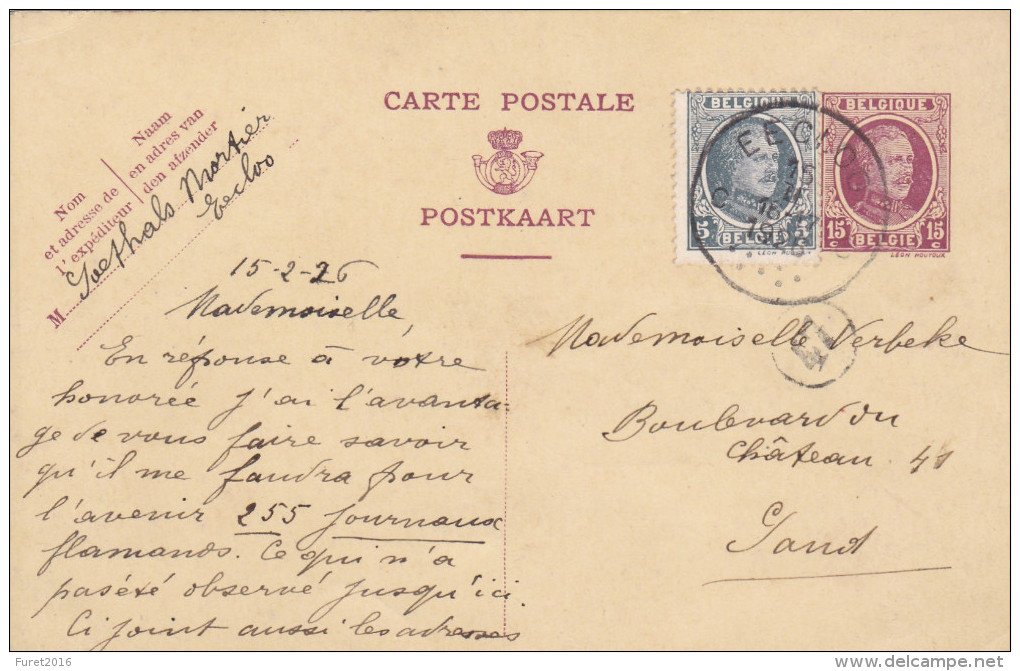 CARTE POSTALE
POSTKAART
Nom
et adresse de
l'expéditeur
Naam
en adres van
den afzender
M Goethals Mortier
Eecloo
BELGIQUE
5 c 5 c
BELGIE
BELGIQUE
15 c 15 c
BELGIE
LEON HOUYOUX
EECLOO
15-2-26
Mademoiselle,
En réponse à votre
honorée j'ai l'avanta-
ge de vous faire savoir
qu'il me faudra pour
l'avenir 255 journaux
flamands. Ce qui n'a
pas été observé jusqu'ici.
Ci joint aussi les adresses
Mademoiselle Verbeke
Boulevard du
Château. 41
Gand
Furet2016
delcampe.net